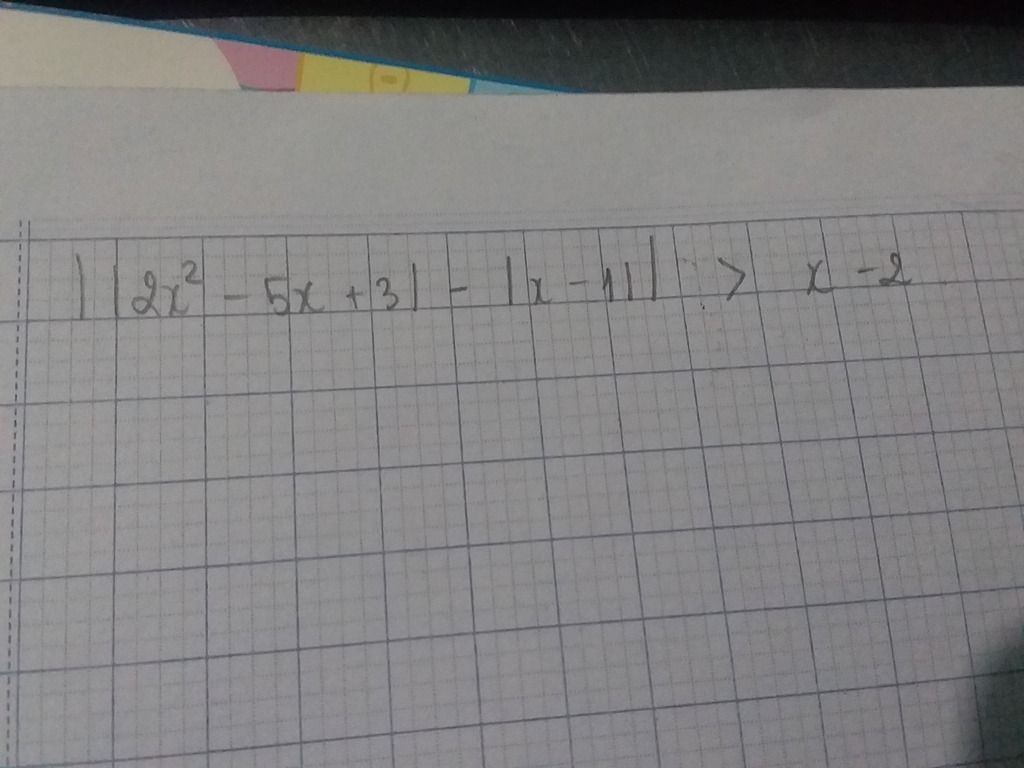 ||2x² - 5x + 3| - |x - 1|| > x - 2